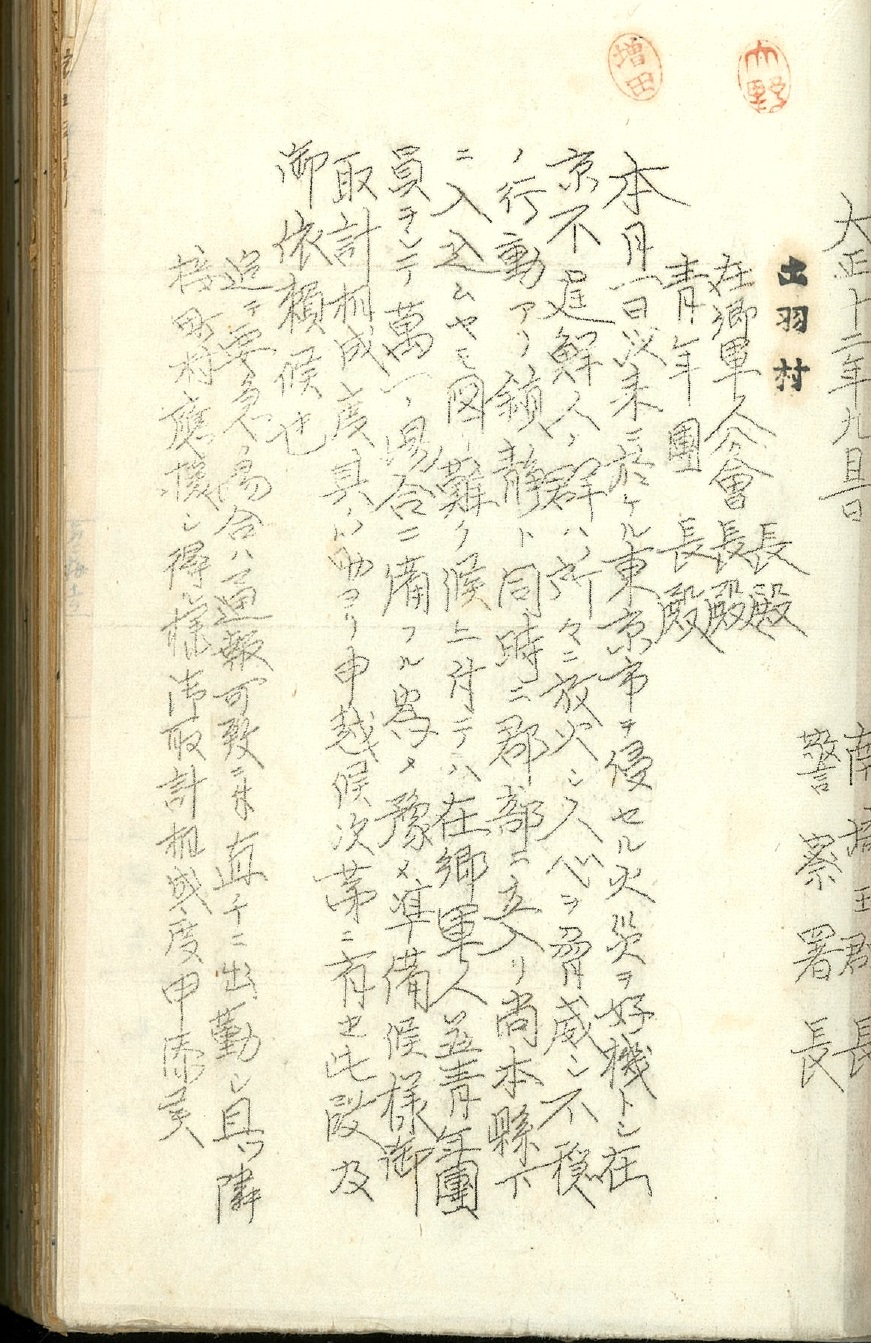 大正十二年九月三日
南埼玉郡長
警察署長
出羽村
長殿
在郷軍人分會長殿
青年團長殿
本月一日以来ニ於ケル東京市ヲ侵セル火災ヲ好機トシ在
京不逞鮮人ノ群ハ所々ニ放火シ人心ヲ脅威シ不穏
ノ行動アリ鎮静ト同時ニ郡部ニ立入リ尚本縣下
ニ入込ムヤモ図リ難ク候ニ付テハ在郷軍人並青年團
員ヲシテ萬一ノ場合ニ備フル為メ豫メ準備候様御
取計相成度其ノ筋ヨリ申越候次第ニ有之此段及
御依頼候也
追テ要急ノ場合ハ通報可致ニ付直チニ出動シ且ツ隣
接町村應援シ得ル様御取計相成度申添候
大野
増田